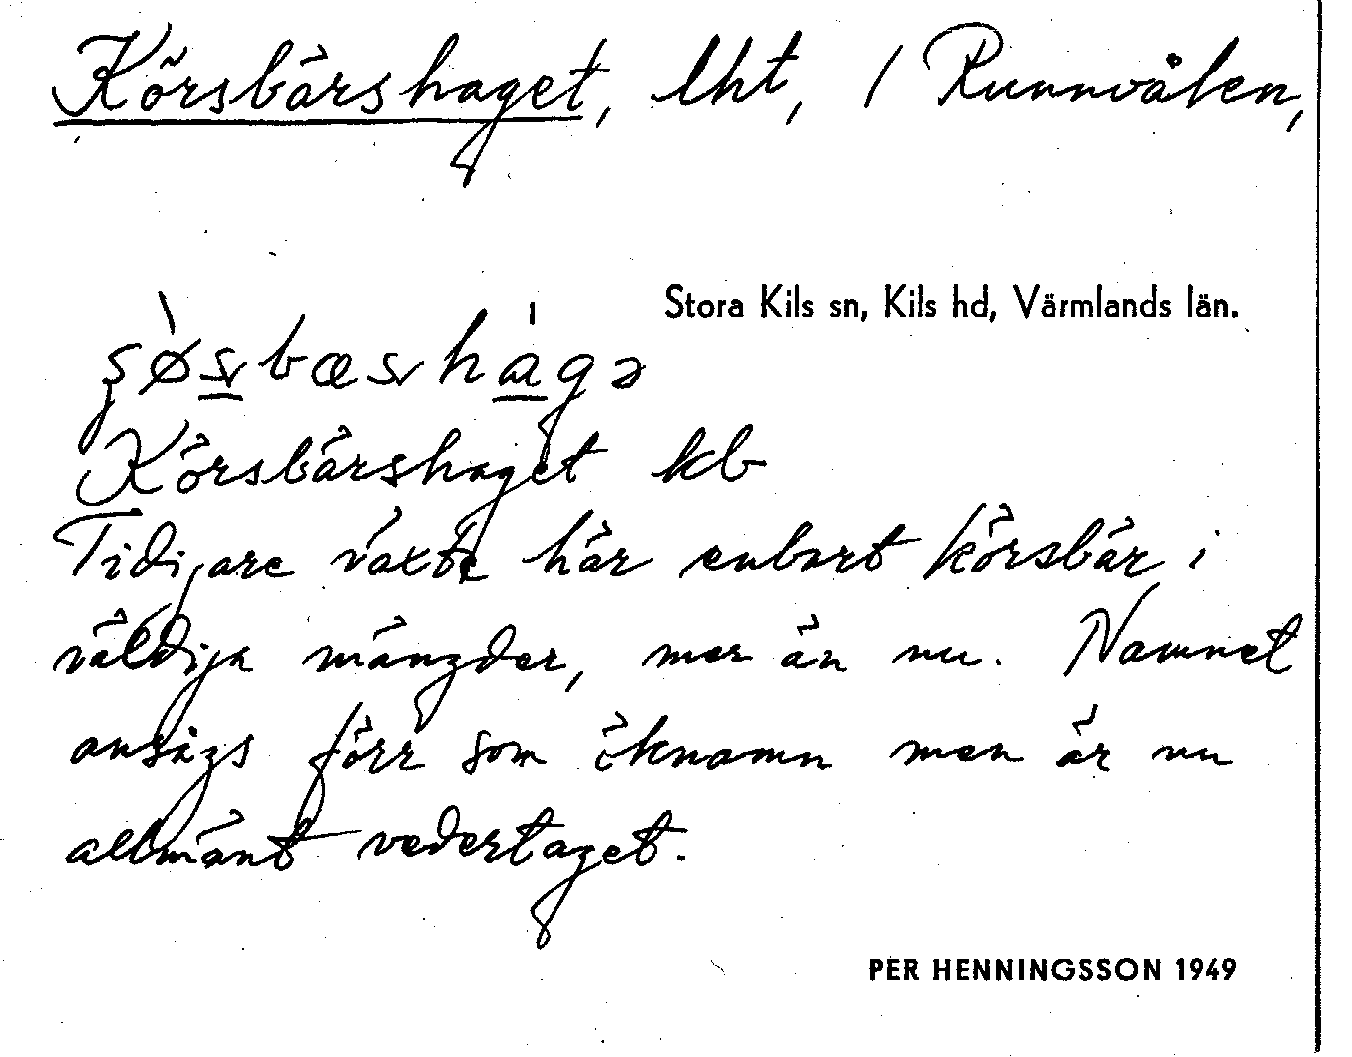 Körsbärshaget, lht, / Runnvålen,
Stora Kils sn, Kils hd, Värmlands län.
Körsbärshaget kb
Tidigare växte här enbart körsbär i
väldiga mängder, mer än nu. Namnet
ansågs förr som öknamn men är nu
allmänt vedertaget.
PER HENNINGSSON 1949